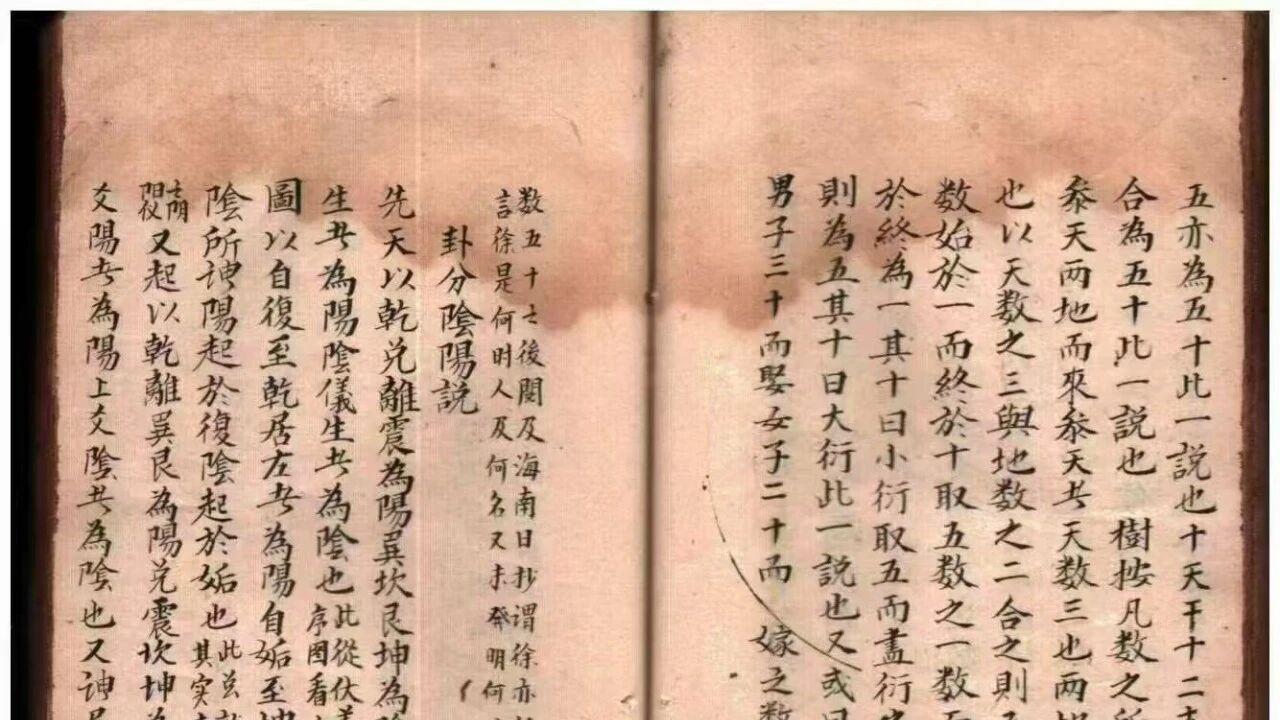 五亦為五十此一説也十天干十二
合為五十此一説也 樹按凡数之
叅天兩地而來叅天者天数三也兩
也以天数之三與地数之二合之則
数始於一而終於十取五数之一数
於終為一其十曰小衍取五而盡衍
則為五其十曰大衍此一説也又或曰
男子三十而娶女子二十而嫁之数
数五十七後閱及海南日抄谓徐亦
言徐是何时人及何名又未發明何
卦分陰陽説
先天以乾兑離震為陽巽坎艮坤為
生者為陽陰儀生者為陰也此從伏
序圖看
圖以自復至乾居左者為陽自姤至坤
陰所谓陽起於復陰起於姤也
其实
又起以乾離巽艮為陽兑震坎坤為
爻陽者為陽上爻陰者為陰也又谓